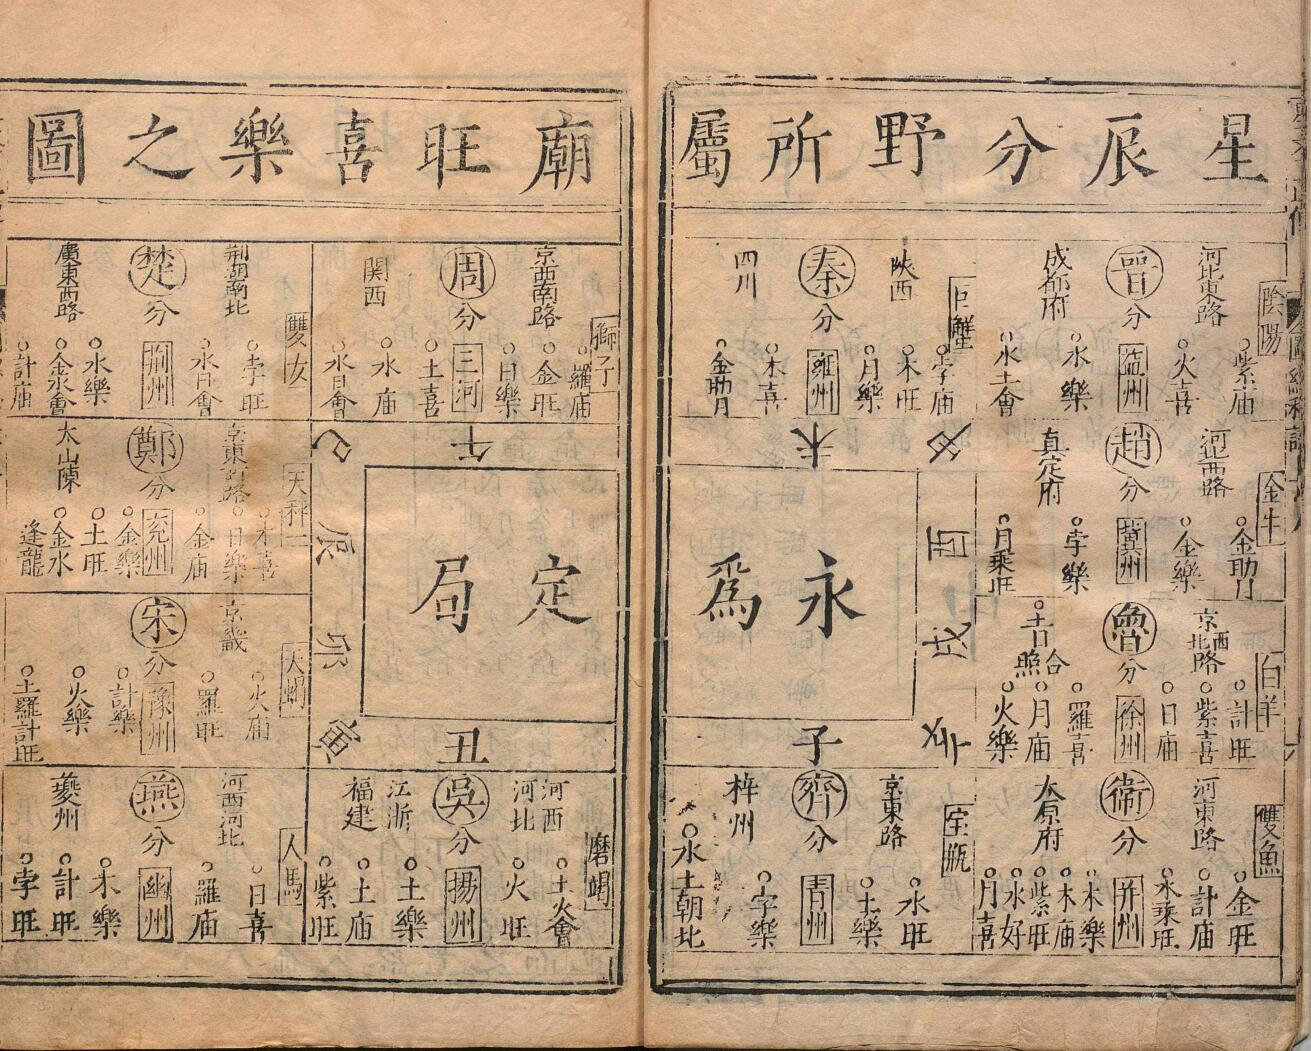 星辰分野所屬
廟旺喜樂之圖
陰陽
河北東路
晉
分
益州
成都府
紫庙
火喜
水樂
水土會
巨蟹
陝西
秦
分
雍州
四川
孛庙
木旺
月樂
木喜
金助月
金牛
河西路
趙
分
冀州
真定府
金助月
金樂
孛樂
月乘旺
白羊
京西北路
魯
分
徐州
計旺
紫喜
日庙
羅喜
月庙
火樂
土日合照
雙魚
河東路
衛
分
并州
太原府
金旺
計庙
水乘旺
木樂
木庙
紫旺
水好
月喜
宝瓶
京東路
齊
分
青州
梓州
水旺
土樂
字樂
水土朝北
未
申
酉
戌
亥
子
永為
定局
獅子
京西南路
周
分
三河
関西
羅庙
金旺
日樂
土喜
水庙
水日會
雙女
荆湖南北
楚
分
荆州
廣東西路
孛旺
水日會
水樂
金水會
計庙
天秤
鄭
分
兖州
太山
木喜
日樂
金庙
金樂
土旺
金水
逢龍
天蝎
京畿
宋
分
豫州
火庙
羅旺
計樂
火樂
土羅計旺
人馬
河西河北
燕
分
幽州
夔州
日喜
羅庙
木樂
計旺
孛旺
磨竭
河西
河北
吳
分
揚州
江浙
福建
土火會
火旺
土樂
土庙
紫旺
午
巳
辰
卯
寅
丑